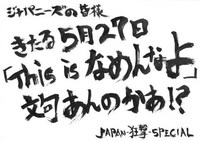 ジャパニーズの皆様
きたる5月27日
「This is なめんなよ」
文句あんのかあ!?
JAPAN・狂撃・SPECIAL